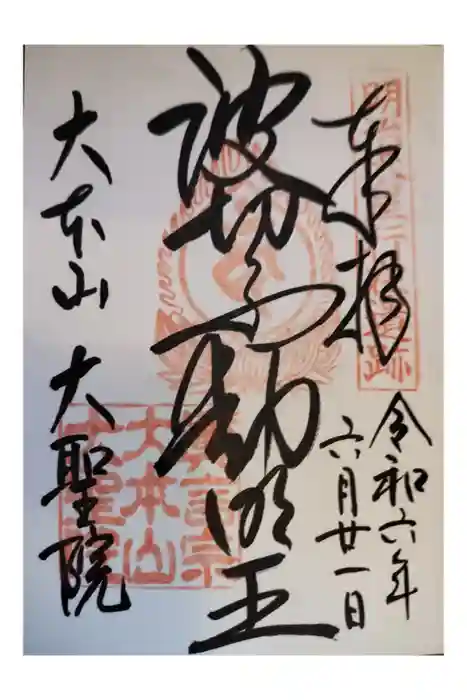 奉拝
令和六年
六月廿一日
波切不動明王
大本山 大聖院
真言宗
大本山
大聖院